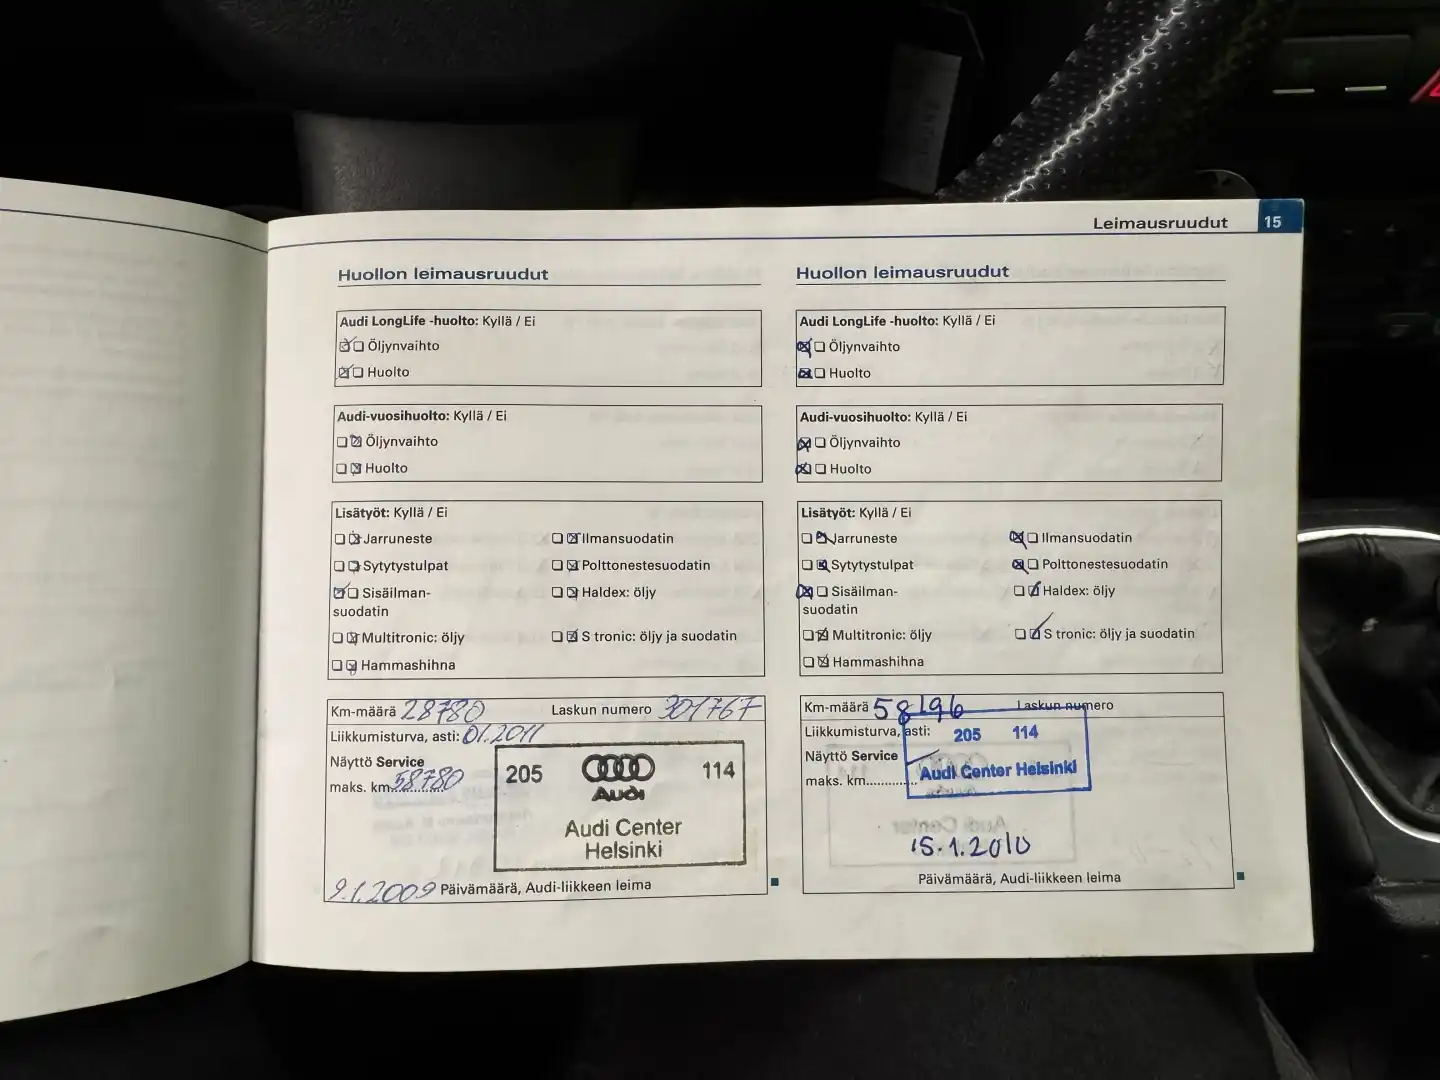 Leimausruudut 15
Huollon leimausruudut
Audi LongLife -huolto: Kyllä / Ei
Öljynvaihto
Huolto
Audi-vuosihuolto: Kyllä / Ei
Öljynvaihto
Huolto
Lisätyöt: Kyllä / Ei
Jarruneste Ilmansuodatin
Sytytystulpat Polttonestesuodatin
Sisäilman- Haldex: öljy
suodatin
Multitronic: öljy S tronic: öljy ja suodatin
Hammashihna
Km-määrä 28780 Laskun numero 301767
Liikkumisturva, asti: 01.2011
Näyttö Service
maks. km 58780
205 Audi 114
Audi Center
Helsinki
9.1.2009 Päivämäärä, Audi-liikkeen leima
Huollon leimausruudut
Audi LongLife -huolto: Kyllä / Ei
Öljynvaihto
Huolto
Audi-vuosihuolto: Kyllä / Ei
Öljynvaihto
Huolto
Lisätyöt: Kyllä / Ei
Jarruneste Ilmansuodatin
Sytytystulpat Polttonestesuodatin
Sisäilman- Haldex: öljy
suodatin
Multitronic: öljy S tronic: öljy ja suodatin
Hammashihna
Km-määrä 58196 Laskun numero
Liikkumisturva, asti:
205 114
Näyttö Service
Audi Center Helsinki
maks. km............
15.1.2010
Päivämäärä, Audi-liikkeen leima